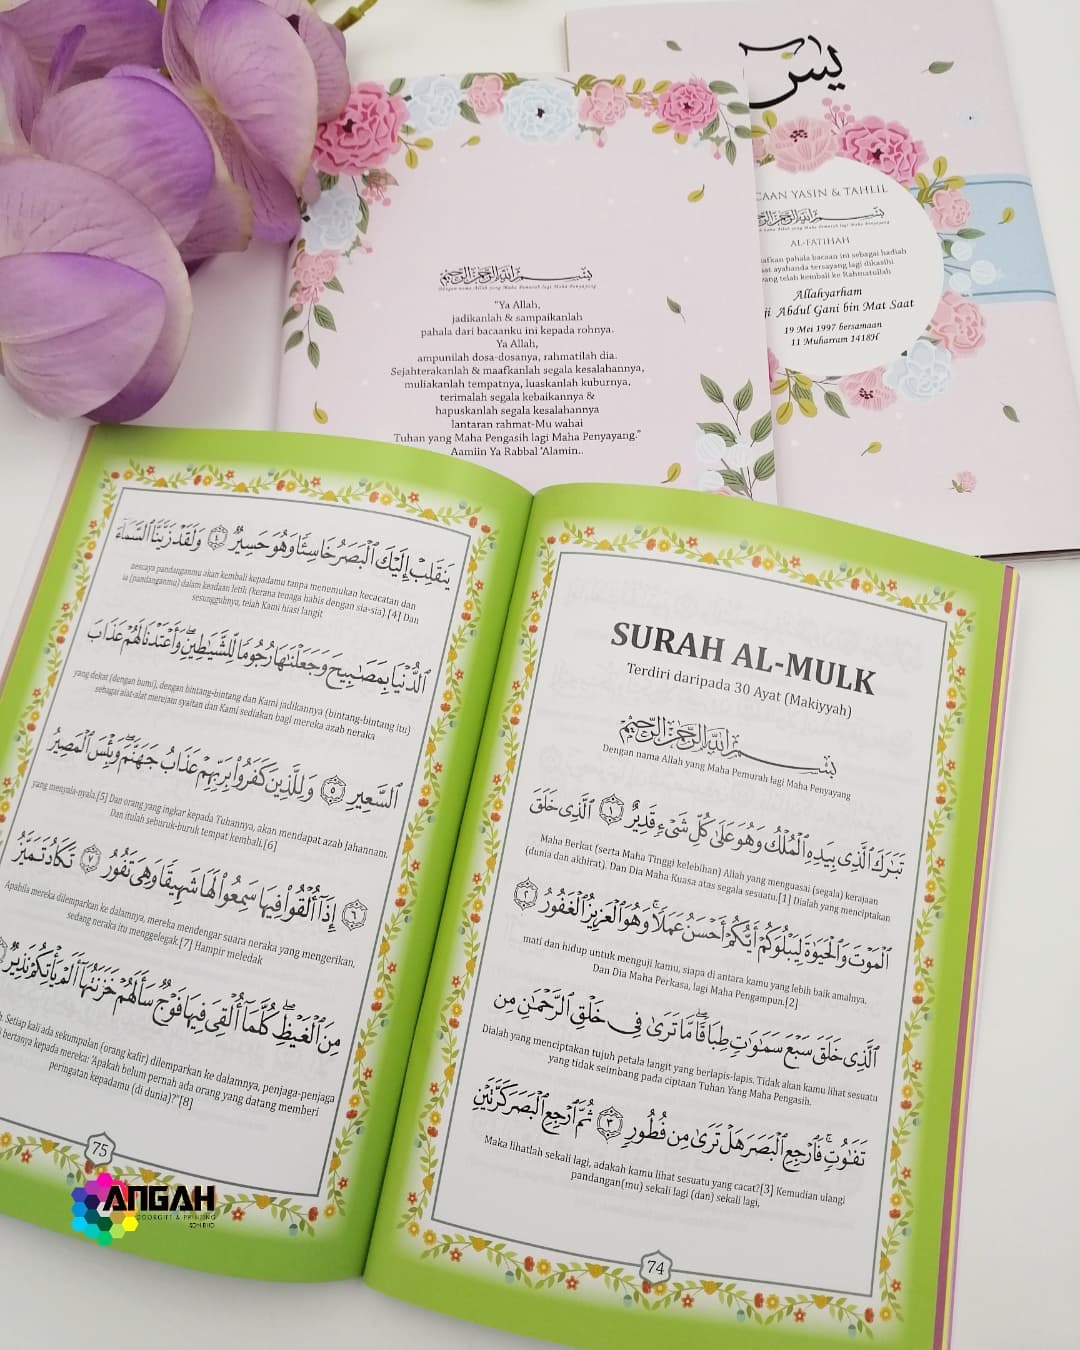 بِسْمِ اللَّهِ الرَّحْمَٰنِ الرَّحِيمِ
dengan nama Allah yang Maha Pemurah lagi Maha Penyayang
"Ya Allah,
jadikanlah & sampaikanlah
pahala dari bacaanku ini kepada rohnya.
Ya Allah,
ampunilah dosa-dosanya, rahmatilah dia.
Sejahterakanlah & maafkanlah segala kesalahannya,
muliakanlah tempatnya, luaskanlah kuburnya,
terimalah segala kebaikannya &
hapuskanlah segala kesalahannya
lantaran rahmat-Mu wahai
Tuhan yang Maha Pengasih lagi Maha Penyayang."
Aamiin Ya Rabbal 'Alamin..
يس
CAAN YASIN & TAHLIL
بِسْمِ اللَّهِ الرَّحْمَٰنِ الرَّحِيمِ
nama Allah yang Maha Pemurah lagi Maha Penyayang
AL-FATIHAH
afkan pahala bacaan ini sebagai hadiah
at ayahanda tersayang lagi dikasihi
yang telah kembali ke Rahmatullah
Allahyarham
ji Abdul Gani bin Mat Saat
19 Mei 1997 bersamaan
11 Muharram 1418H
SURAH AL-MULK
Terdiri daripada 30 Ayat (Makiyyah)
بِسْمِ اللَّهِ الرَّحْمَٰنِ الرَّحِيمِ
Dengan nama Allah yang Maha Pemurah lagi Maha Penyayang
تَبَٰرَكَ ٱلَّذِى بِيَدِهِ ٱلْمُلْكُ وَهُوَ عَلَىٰ كُلِّ شَىْءٍ قَدِيرٌ ١ ٱلَّذِى خَلَقَ
Maha Berkat (serta Maha Tinggi kelebihan) Allah yang menguasai (segala) kerajaan
(dunia dan akhirat). Dan Dia Maha Kuasa atas segala sesuatu.[1] Dialah yang menciptakan
ٱلْمَوْتَ وَٱلْحَيَوٰةَ لِيَبْلُوَكُمْ أَيُّكُمْ أَحْسَنُ عَمَلًا ۚ وَهُوَ ٱلْعَزِيزُ ٱلْغَفُورُ ٢
mati dan hidup untuk menguji kamu, siapa di antara kamu yang lebih baik amalnya.
Dan Dia Maha Perkasa, lagi Maha Pengampun.[2]
ٱلَّذِى خَلَقَ سَبْعَ سَمَٰوَٰتٍ طِبَاقًا ۖ مَّا تَرَىٰ فِى خَلْقِ ٱلرَّحْمَٰنِ مِن
Dialah yang menciptakan tujuh petala langit yang berlapis-lapis. Tidak akan kamu lihat sesuatu
yang tidak seimbang pada ciptaan Tuhan Yang Maha Pengasih.
تَفَٰوُتٍ ۖ فَٱرْجِعِ ٱلْبَصَرَ هَلْ تَرَىٰ مِن فُطُورٍ ٣ ثُمَّ ٱرْجِعِ ٱلْبَصَرَ كَرَّتَيْنِ
Maka lihatlah sekali lagi, adakah kamu lihat sesuatu yang cacat?[3] Kemudian ulangi
pandangan(mu) sekali lagi (dan) sekali lagi,
74
يَنقَلِبْ إِلَيْكَ ٱلْبَصَرُ خَاسِئًا وَهُوَ حَسِيرٌ ٤ وَلَقَدْ زَيَّنَّا ٱلسَّمَآءَ
nescaya pandanganmu akan kembali kepadamu tanpa menemukan kecacatan dan
ia (pandanganmu) dalam keadaan letih (kerana tenaga habis dengan sia-sia).[4] Dan
sesungguhnya, telah Kami hiasi langit
ٱلدُّنْيَا بِمَصَٰبِيحَ وَجَعَلْنَٰهَا رُجُومًا لِّلشَّيَٰطِينِ ۖ وَأَعْتَدْنَا لَهُمْ عَذَابَ
yang dekat (dengan bumi), dengan bintang-bintang dan Kami jadikannya (bintang-bintang itu)
sebagai alat-alat merejam syaitan dan Kami sediakan bagi mereka azab neraka
ٱلسَّعِيرِ ٥ وَلِلَّذِينَ كَفَرُوا۟ بِرَبِّهِمْ عَذَابُ جَهَنَّمَ ۖ وَبِئْسَ ٱلْمَصِيرُ
yang menyala-nyala.[5] Dan orang yang ingkar kepada Tuhannya, akan mendapat azab Jahannam.
Dan itulah seburuk-buruk tempat kembali.[6]
٦ إِذَآ أُلْقُوا۟ فِيهَا سَمِعُوا۟ لَهَا شَهِيقًا وَهِىَ تَفُورُ ٧ تَكَادُ تَمَيَّزُ
Apabila mereka dilemparkan ke dalamnya, mereka mendengar suara neraka yang mengerikan,
sedang neraka itu menggelegak.[7] Hampir meledak
مِنَ ٱلْغَيْظِ ۖ كُلَّمَآ أُلْقِىَ فِيهَا فَوْجٌ سَأَلَهُمْ خَزَنَتُهَآ أَلَمْ يَأْتِكُمْ نَذِيرٌ
Setiap kali ada sekumpulan (orang kafir) dilemparkan ke dalamnya, penjaga-penjaga
bertanya kepada mereka: 'Apakah belum pernah ada orang yang datang memberi
peringatan kepadamu (di dunia)?'[8]
75
ANGAH
DOORGIFT & PRINTING
SDN BHD